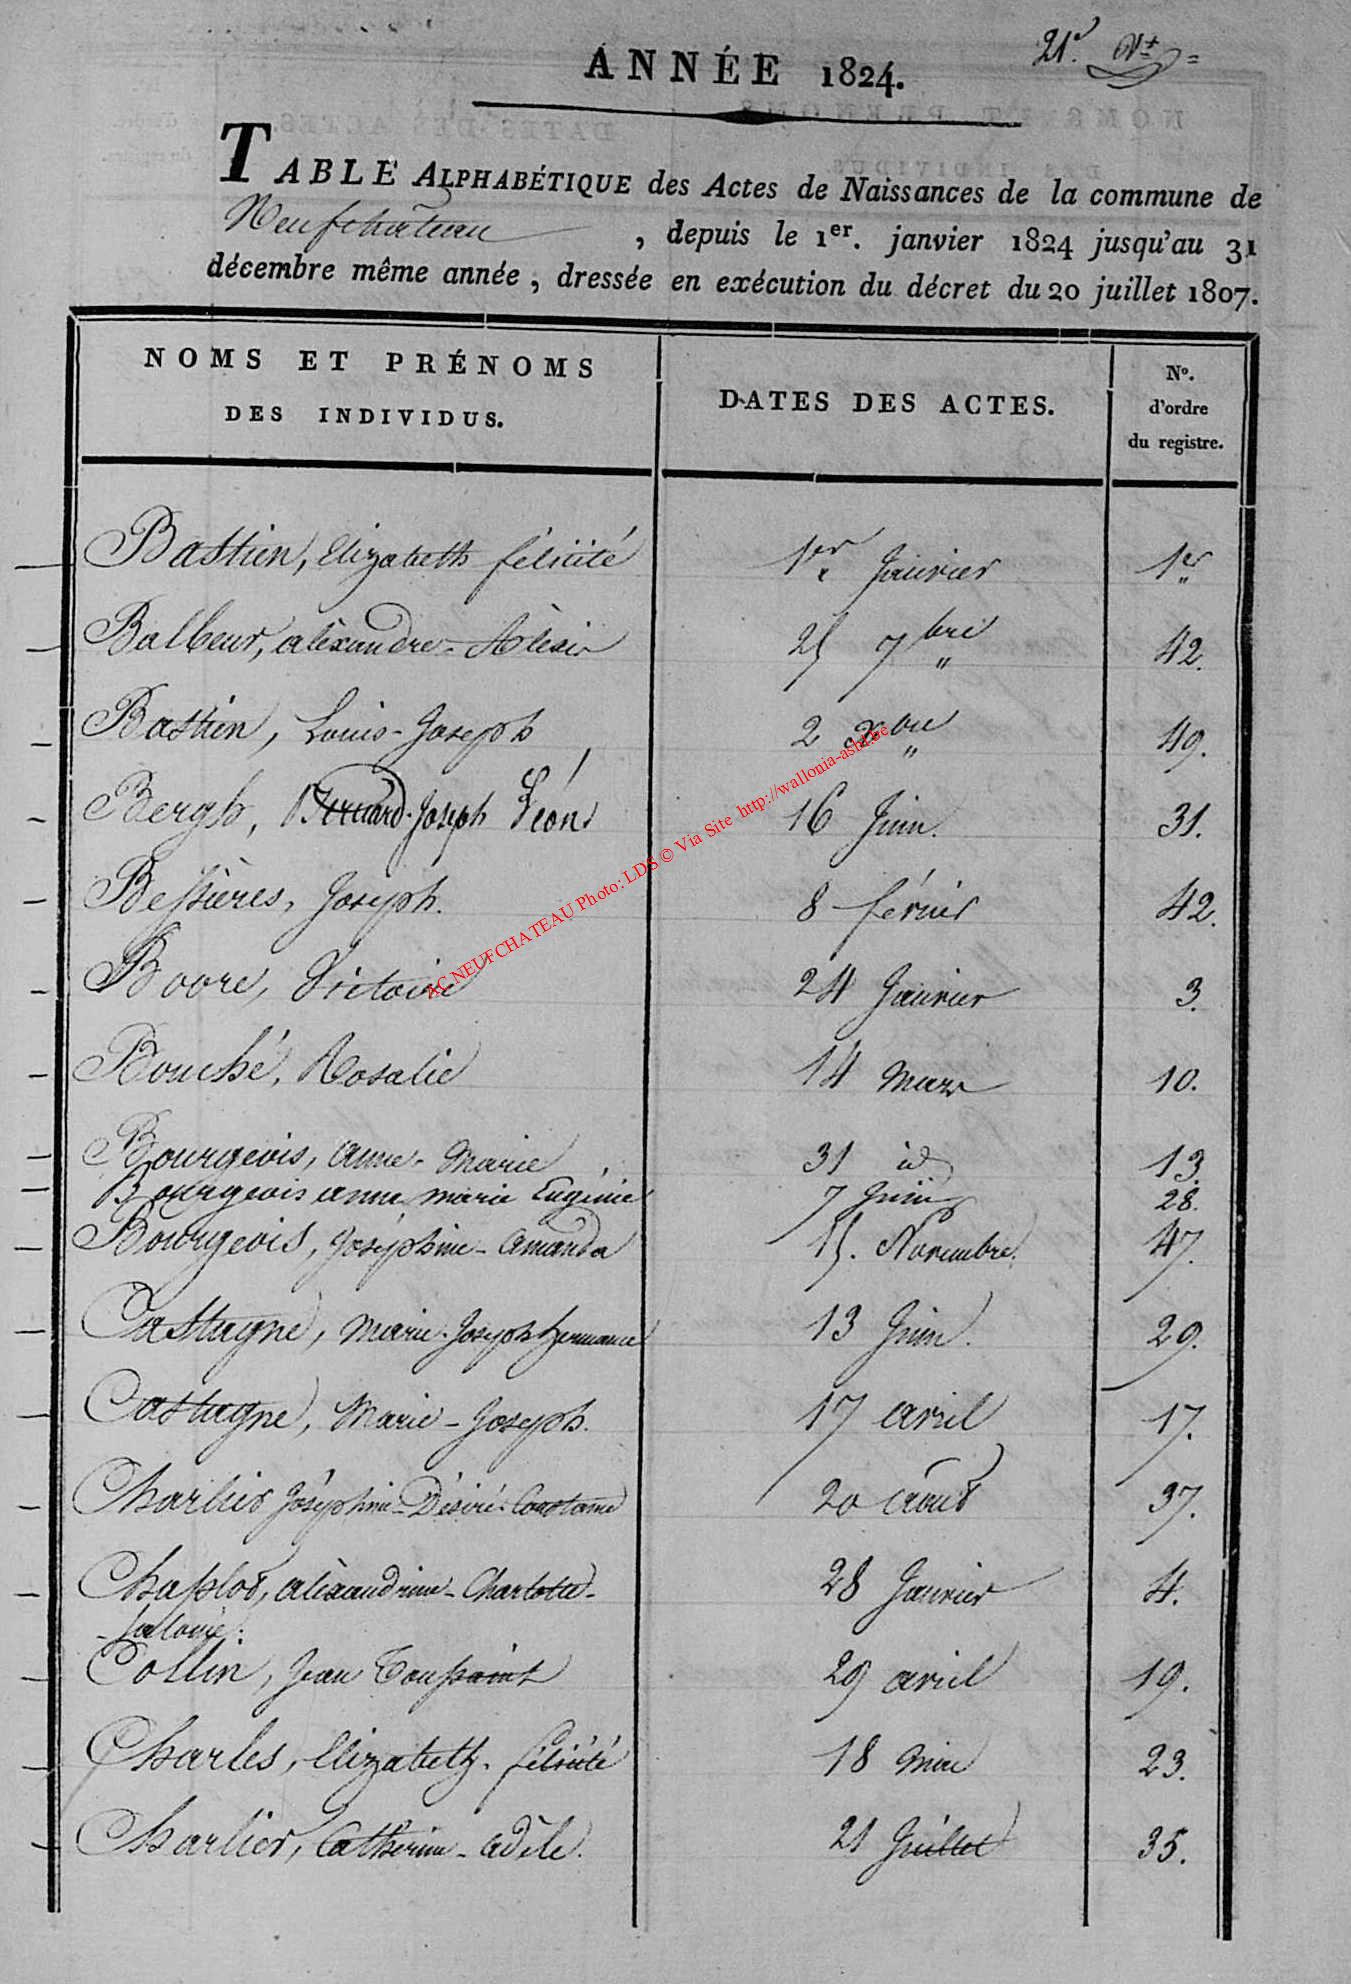 21e. Nt =
ANNÉE 1824.
TABLE ALPHABÉTIQUE des Actes de Naissances de la commune de
Neufchâteau, depuis le 1er. janvier 1824 jusqu'au 31
décembre même année, dressée en exécution du décret du 20 juillet 1807.
NOMS ET PRÉNOMS DES INDIVIDUS. DATES DES ACTES. No. d'ordre du registre.
Bastien, Elizabeth félicité 1er Janvier 1er
Balbeur, alexandre- Alexis 25 7bre 42.
Bastien, Louis-Joseph 2 Xbre 49.
Bergh, Bernard-Joseph Léon 16 Juin. 31.
Bessières, Joseph. 8 février 42.
Boore, Victoire 24 Janvier 3.
Bouché, Rosalie 14 Mars 10.
Bourgeois, anne-Marie 31 id 13.
Bourgeois anne marie Eugénie 7 Juin 28.
Bourgeois, Joséphine-Amanda 15. Novembre. 47.
Castagne, Marie-Joseph hermance 13 Juin. 29.
Castagne, Marie-Joseph. 17 avril 17.
Charlier Joséphine-Désiré-Constance 20 août 37.
Chasslot, alexandrine-Charlotte- 28 Janvier 4.
- Salomé.
Collin, Jean Toussaint 29 avril 19.
Charles, Elizabeth-félicité 18 Mai 23.
Charlier, Catherine-adèle. 21 Juillet 35.
AC NEUFCHATEAU Photo: LDS © Via Site http://wallonia-asbl.be